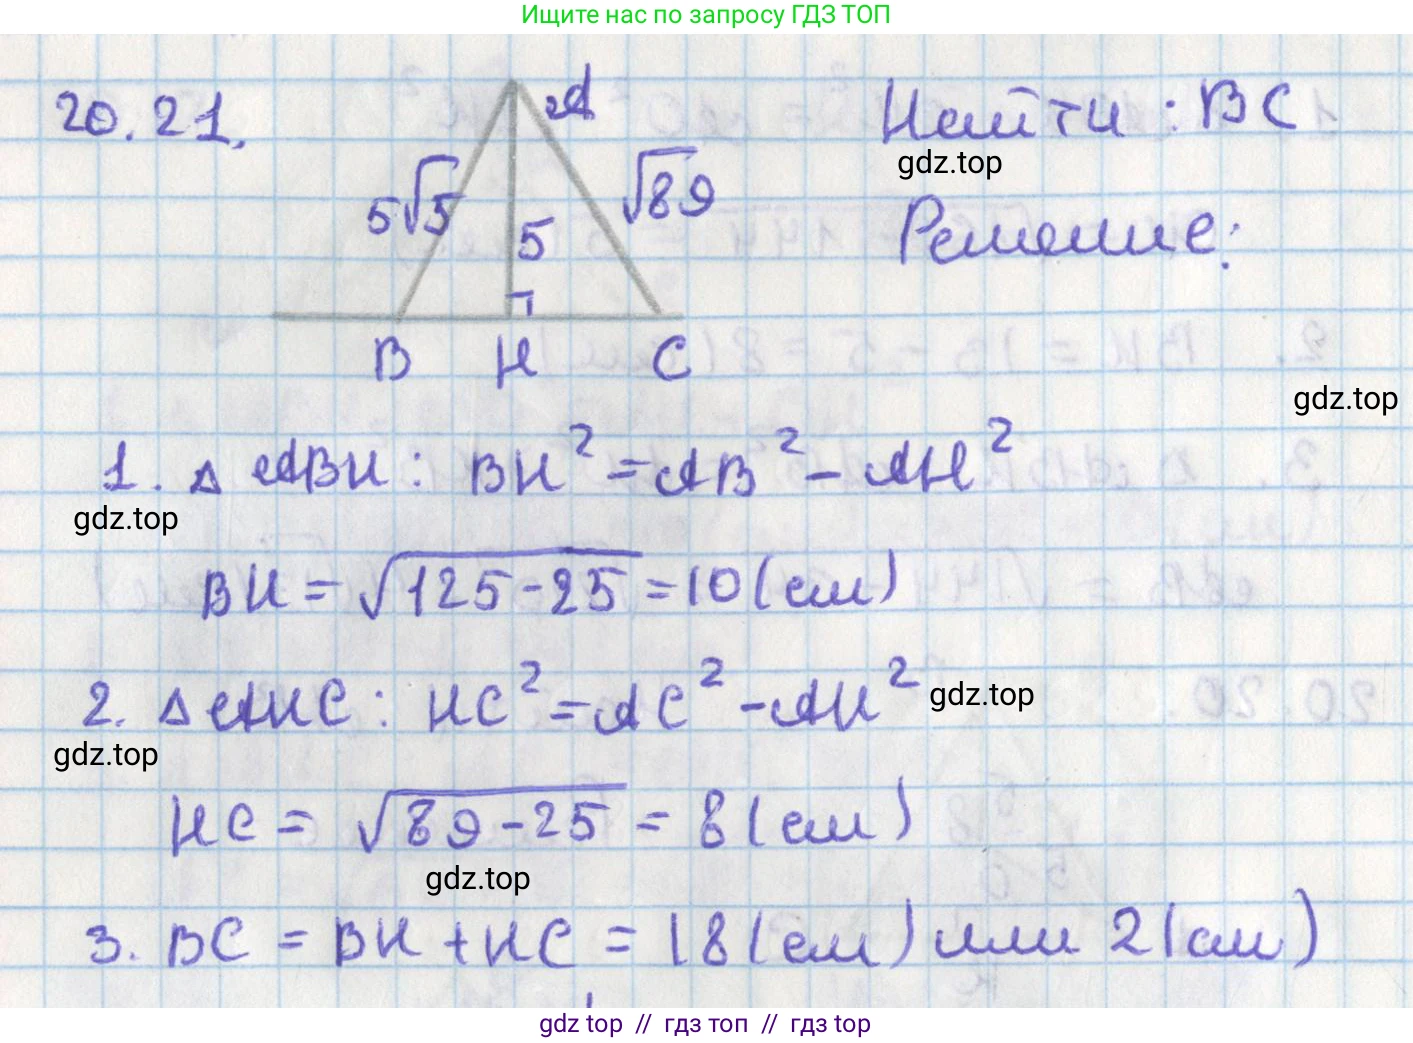 Ищите нас по запросу ГДЗ ТОП
20.21.
A
Найти: BC
gdz.top
5√5
5
√89
Решение:
B H C
gdz.top
1. △ABH: BH² = AB² - AH²
gdz.top
BH = √125-25 = 10 (см)
2. △AHC: HC² = AC² - AH²
gdz.top
gdz.top
HC = √89-25 = 8 (см)
gdz.top
3. BC = BH + HC = 18 (см) или 2 (см)
gdz top // гдз топ // гдз top